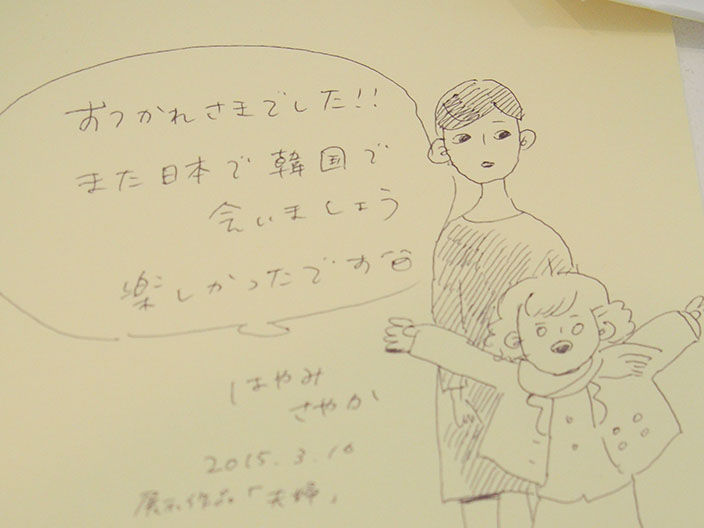 おつかれさまでした!!
また日本で韓国で
会いましょう
楽しかったです
はやみ
さやか
2015.3.16
展示作品「夫婦」